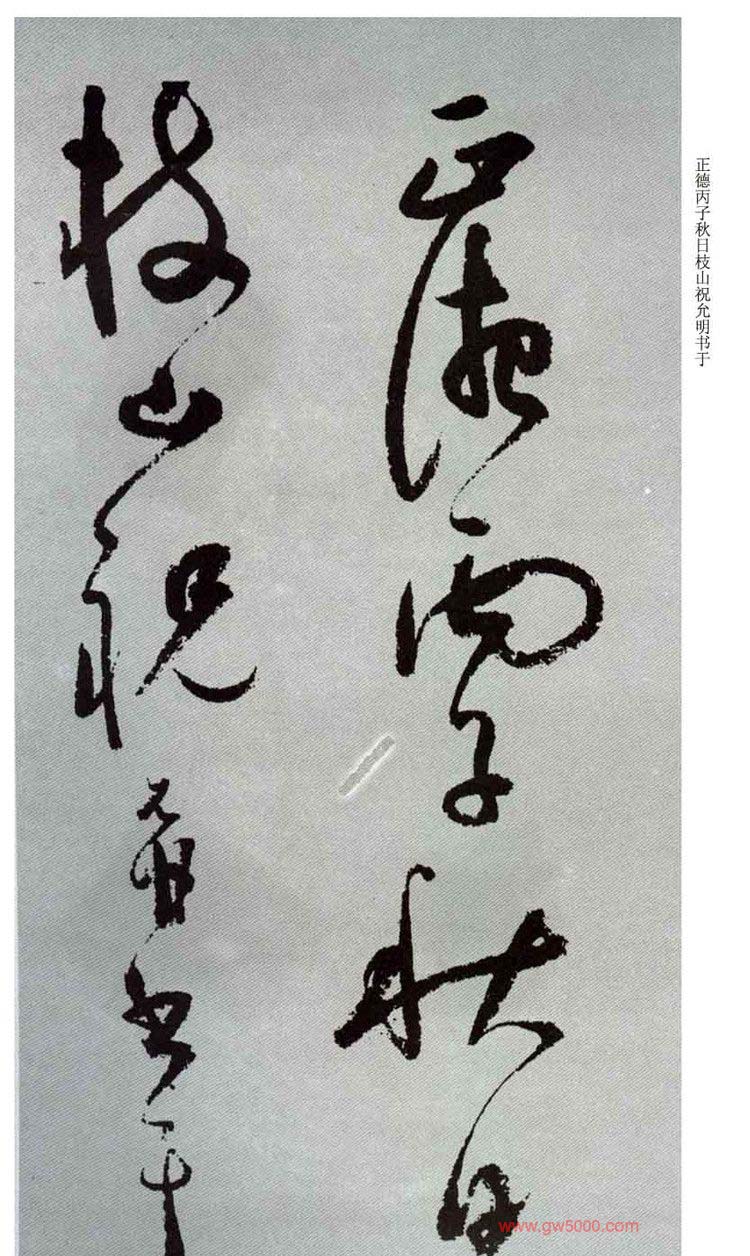 正德丙子秋日枝山祝允明书于
正德丙子秋日
枝山祝允明書于
www.gw5000.com